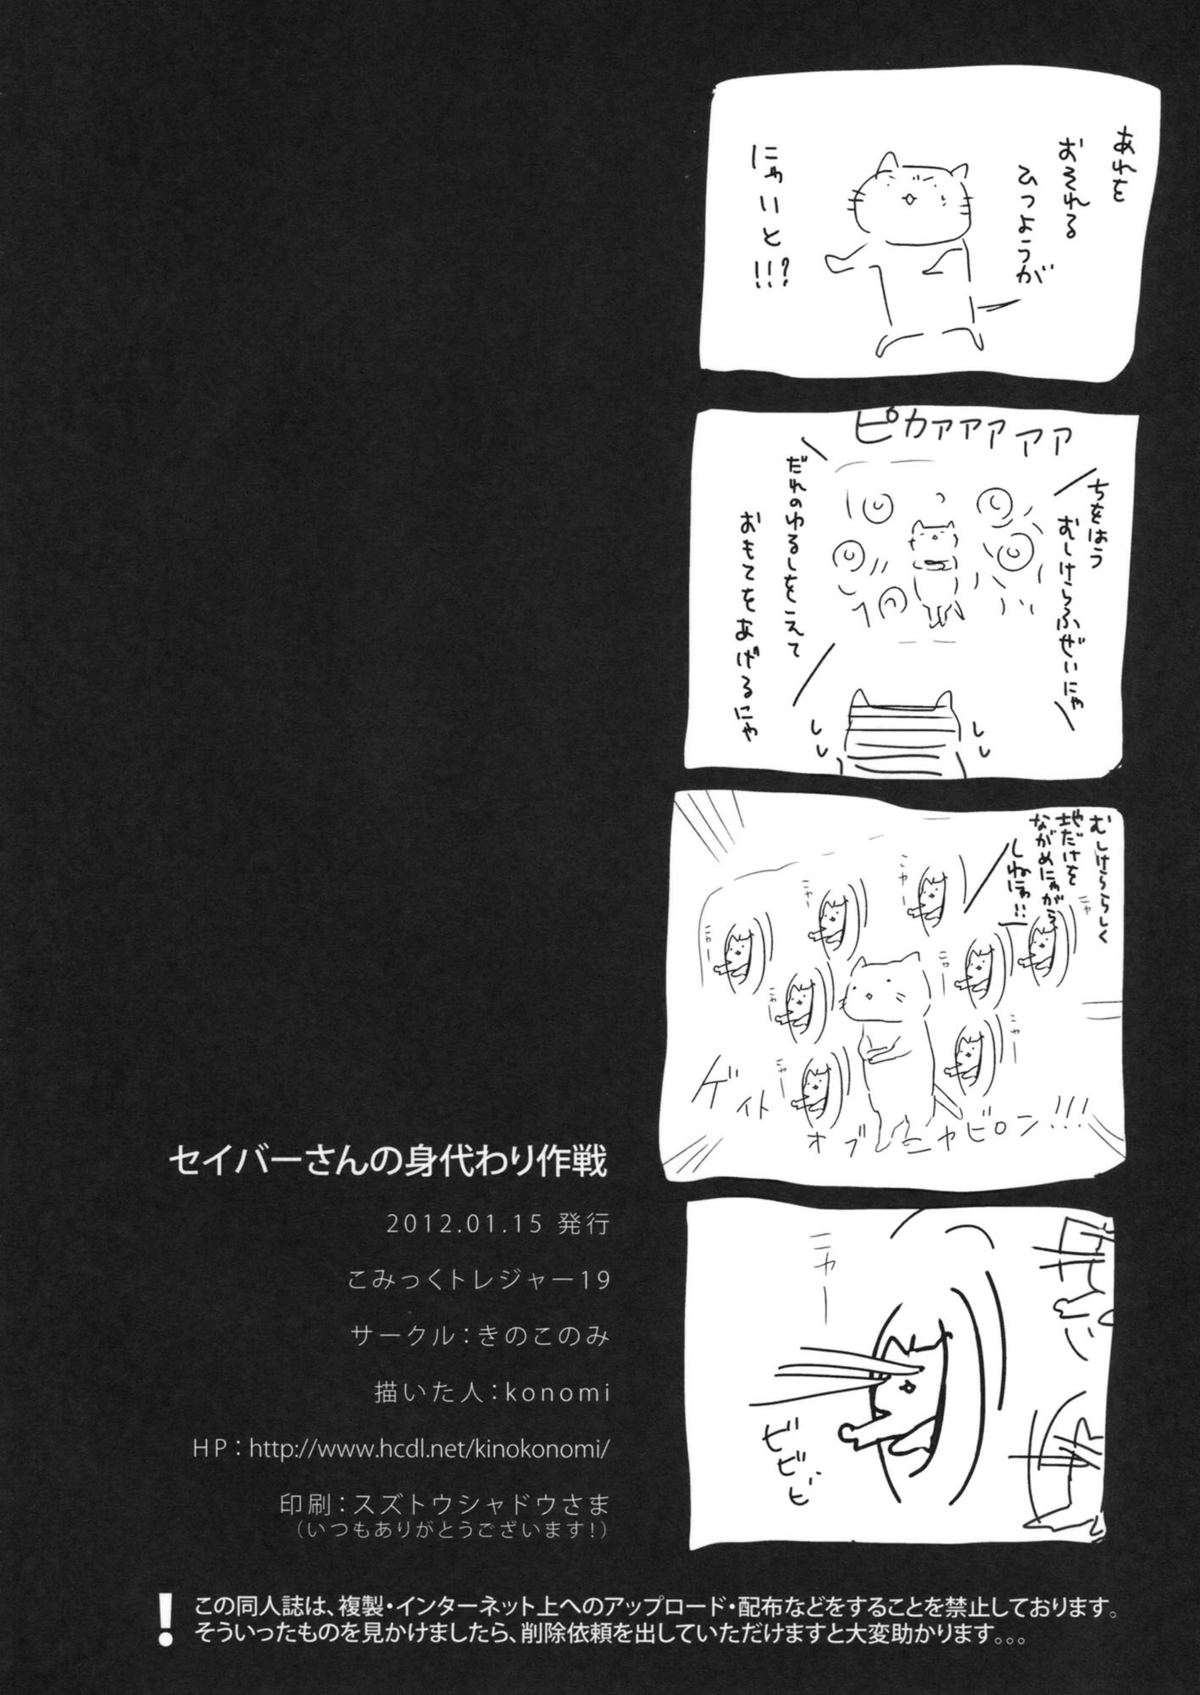 あれを
おそれる
ひつようが
にゃいと!!!?
ピカァァァァァ
ちをはう
むしけらふぜいにゃ
だれのゆるしをえて
おもてをあげるにゃ
むしけららしく
地だけを
ながめにゃがら
しねにゃ!!
ニャー
ニャー
ニャー
ニャー
ニャー
ニャー
ニャー
ニャー
ゲイト
オブニャビロン!!!
ニャー
ビビビ
セイバーさんの身代わり作戦
2012.01.15 発行
こみっくトレジャー19
サークル：きのこのみ
描いた人：konomi
HP：http://www.hcdl.net/kinokonomi/
印刷：スズトウシャドウさま
（いつもありがとうございます!）
! この同人誌は、複製・インターネット上へのアップロード・配布などをすることを禁止しております。
そういったものを見かけましたら、削除依頼を出していただけますと大変助かります。。。